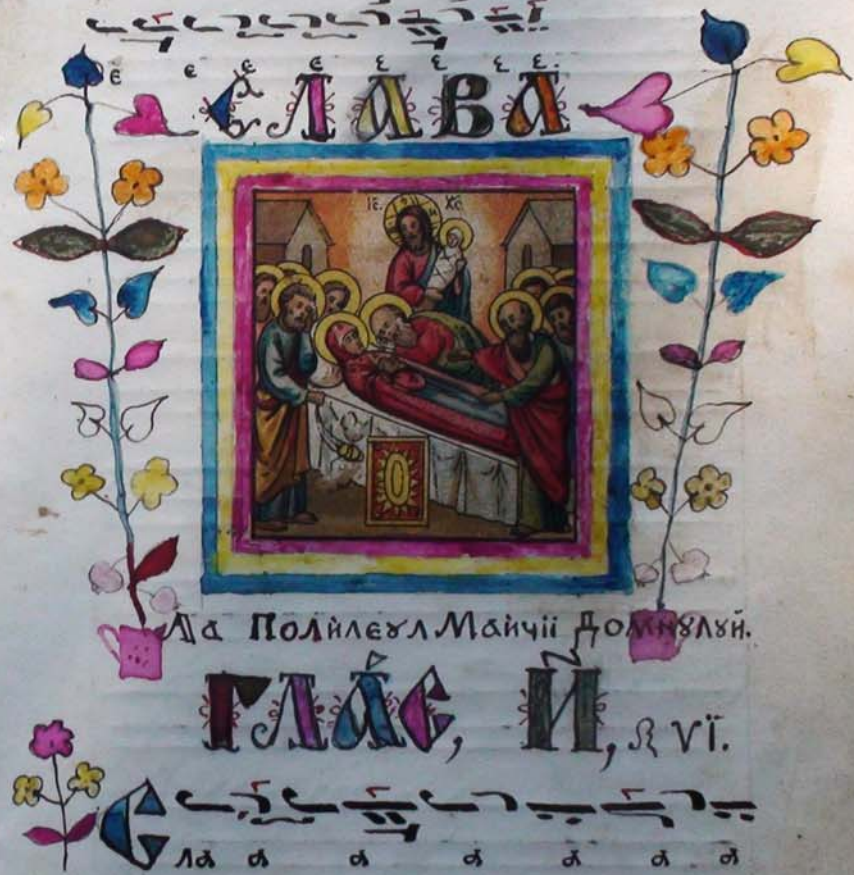 є є є є є є є є.
СЛАВА
ІС. ХС
Ла Полѝлеꙋл Майчїи Домнꙋлꙋй.
ГЛАС, Й, vї.
Сла а а а а а а